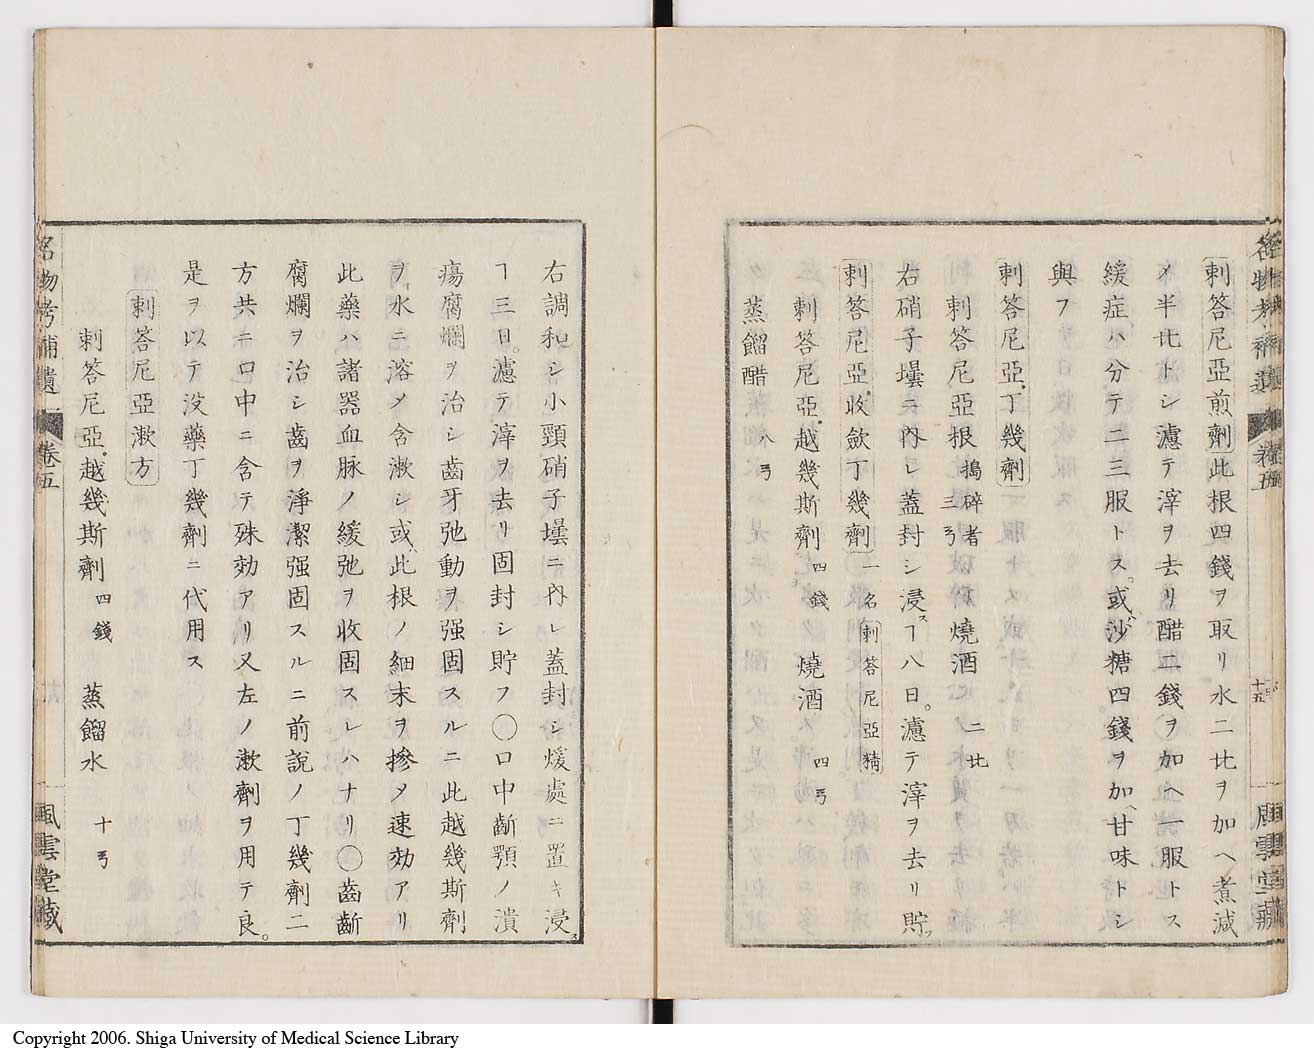 刺答尼亞煎劑此根四錢ヲ取リ水二㪲ヲ加ヘ煮減
メ半㪲トシ濾テ滓ヲ去リ醋二錢ヲ加ヘ一服トス
緩症ハ分テ二三服トス。或ハ沙糖四錢ヲ加ヘ甘味トシ
與フ
刺答尼亞丁幾劑
刺答尼亞根 搗碎者三㕛 燒酒 二㪲
右硝子壜ニ內レ蓋封シ浸スヿ八日。濾テ滓ヲ去リ貯フ
刺答尼亞收斂丁幾劑 一名刺答尼亞精
刺答尼亞越幾斯劑 四錢 燒酒 四㕛
蒸餾醋 八㕛
名物考補遺 卷五 十五 風雲堂藏
右調和シ小頸硝子壜ニ內レ蓋封シ煖處ニ置キ浸
ヿ三日。濾テ滓ヲ去リ固封シ貯フ〇口中齗顎ノ潰
瘍腐爛ヲ治シ齒牙弛動ヲ强固スルニ此越幾斯劑
ヲ水ニ溶メ含漱シ或ハ此根ノ細末ヲ摻メ速効アリ
此藥ハ諸器血脉ノ緩弛ヲ收固スレハナリ〇齒齗
腐爛ヲ治シ齒ヲ淨潔强固スルニ前說ノ丁幾劑二
方共ニ口中ニ含テ殊効アリ又左ノ漱劑ヲ用テ良。
是ヲ以テ沒藥丁幾劑ニ代用ス
刺答尼亞漱方
刺答尼亞越幾斯劑 四錢 蒸餾水 十㕛
名物考補遺 卷五 風雲堂藏
Copyright 2006. Shiga University of Medical Science Library